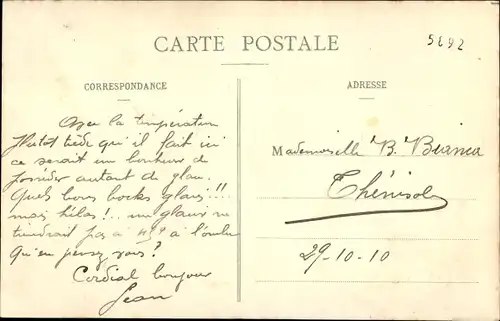 CARTE POSTALE
5892
CORRESPONDANCE
ADRESSE
Avec la température
plutot tiède qu'il fait ici
ce serait un bonheur de
posséder autant de glace.
Quels bons bocks glacés!!!
mais hélas!.. un glacier ne
tiendrait pas à 45° à l'ombre
Qu'en pensez vous?
Cordial bonjour
Jean
Mademoiselle B. Bianca
Thénisol
29-10-10